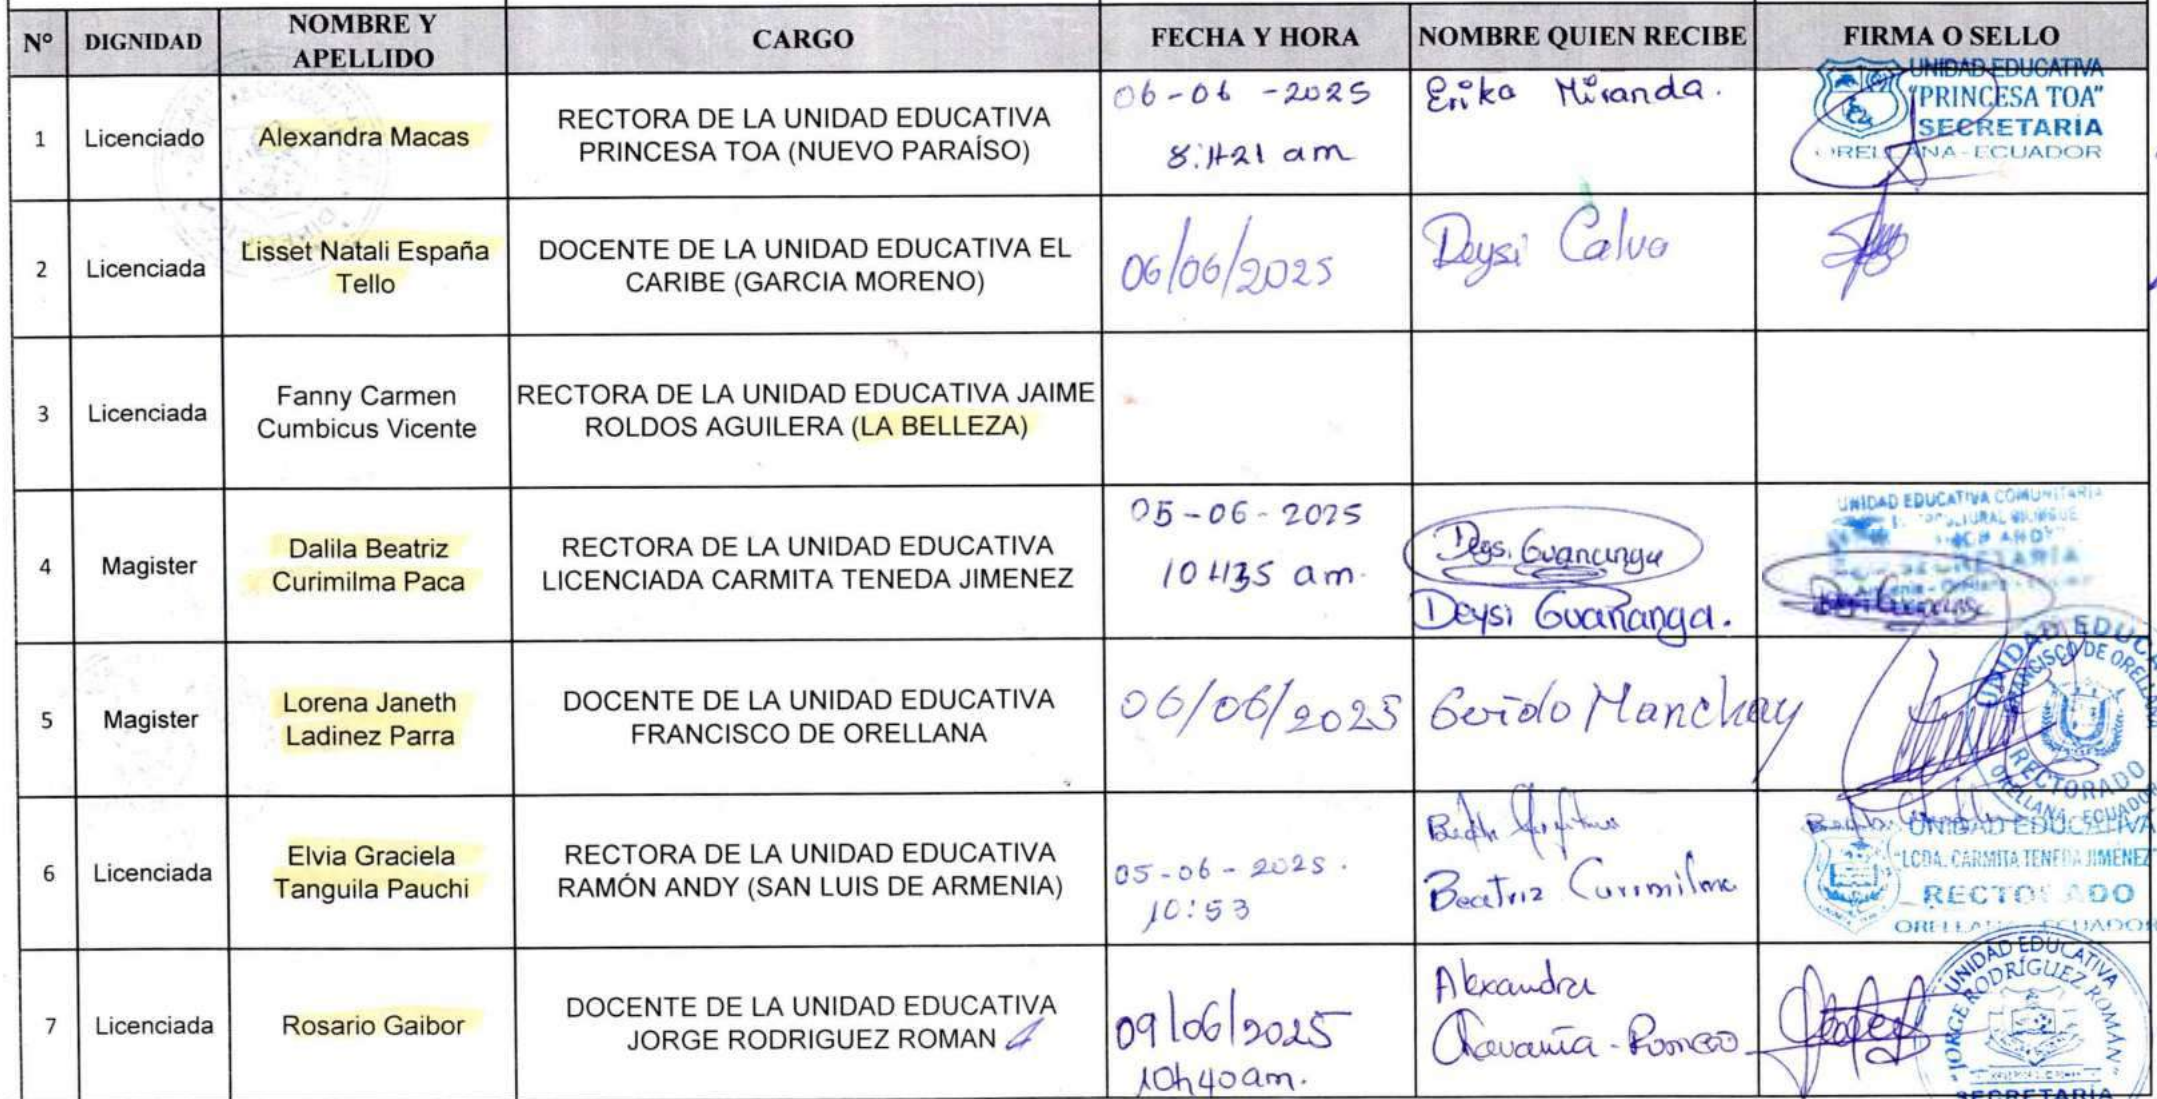 Nº DIGNIDAD NOMBRE Y APELLIDO CARGO FECHA Y HORA NOMBRE QUIEN RECIBE FIRMA O SELLO
1 Licenciado Alexandra Macas
RECTORA DE LA UNIDAD EDUCATIVA
PRINCESA TOA (NUEVO PARAÍSO)
06-06-2025
Erika Miranda.
UNIDAD EDUCATIVA
"PRINCESA TOA"
SECRETARÍA
ORELLANA-ECUADOR
2 Licenciada
Lisset Natali España
Tello
DOCENTE DE LA UNIDAD EDUCATIVA EL
CARIBE (GARCIA MORENO)
06/06/2025
Deysi Calva
3 Licenciada
Fanny Carmen
Cumbicus Vicente
RECTORA DE LA UNIDAD EDUCATIVA JAIME
ROLDOS AGUILERA (LA BELLEZA)
4 Magister
Dalila Beatriz
Curimilma Paca
RECTORA DE LA UNIDAD EDUCATIVA
LICENCIADA CARMITA TENEDA JIMENEZ
05-06-2025
10H35 am.
Deysi Guananga.
UNIDAD EDUCATIVA COMUNITARIA
SECRETARÍA
5 Magister
Lorena Janeth
Ladinez Parra
DOCENTE DE LA UNIDAD EDUCATIVA
FRANCISCO DE ORELLANA
06/06/2025
Manchay
UNIDAD EDUCA
FRANCISCO DE ORELLANA
RECTORADO
ORELLANA - ECUADOR
6 Licenciada
Elvia Graciela
Tanguila Pauchi
RECTORA DE LA UNIDAD EDUCATIVA
RAMÓN ANDY (SAN LUIS DE ARMENIA)
05-06-2025.
10:53
Beatriz Curimilma
UNIDAD EDUCATIVA
"LCDA. CARMITA TENEDA JIMENEZ"
RECTORADO
ORELLANA - ECUADOR
7 Licenciada Rosario Gaibor
DOCENTE DE LA UNIDAD EDUCATIVA
JORGE RODRIGUEZ ROMAN
09/06/2025
10h40am.
Alexandra
UNIDAD EDUCATIVA
"JORGE RODRÍGUEZ ROMÁN"
SECRETARÍA